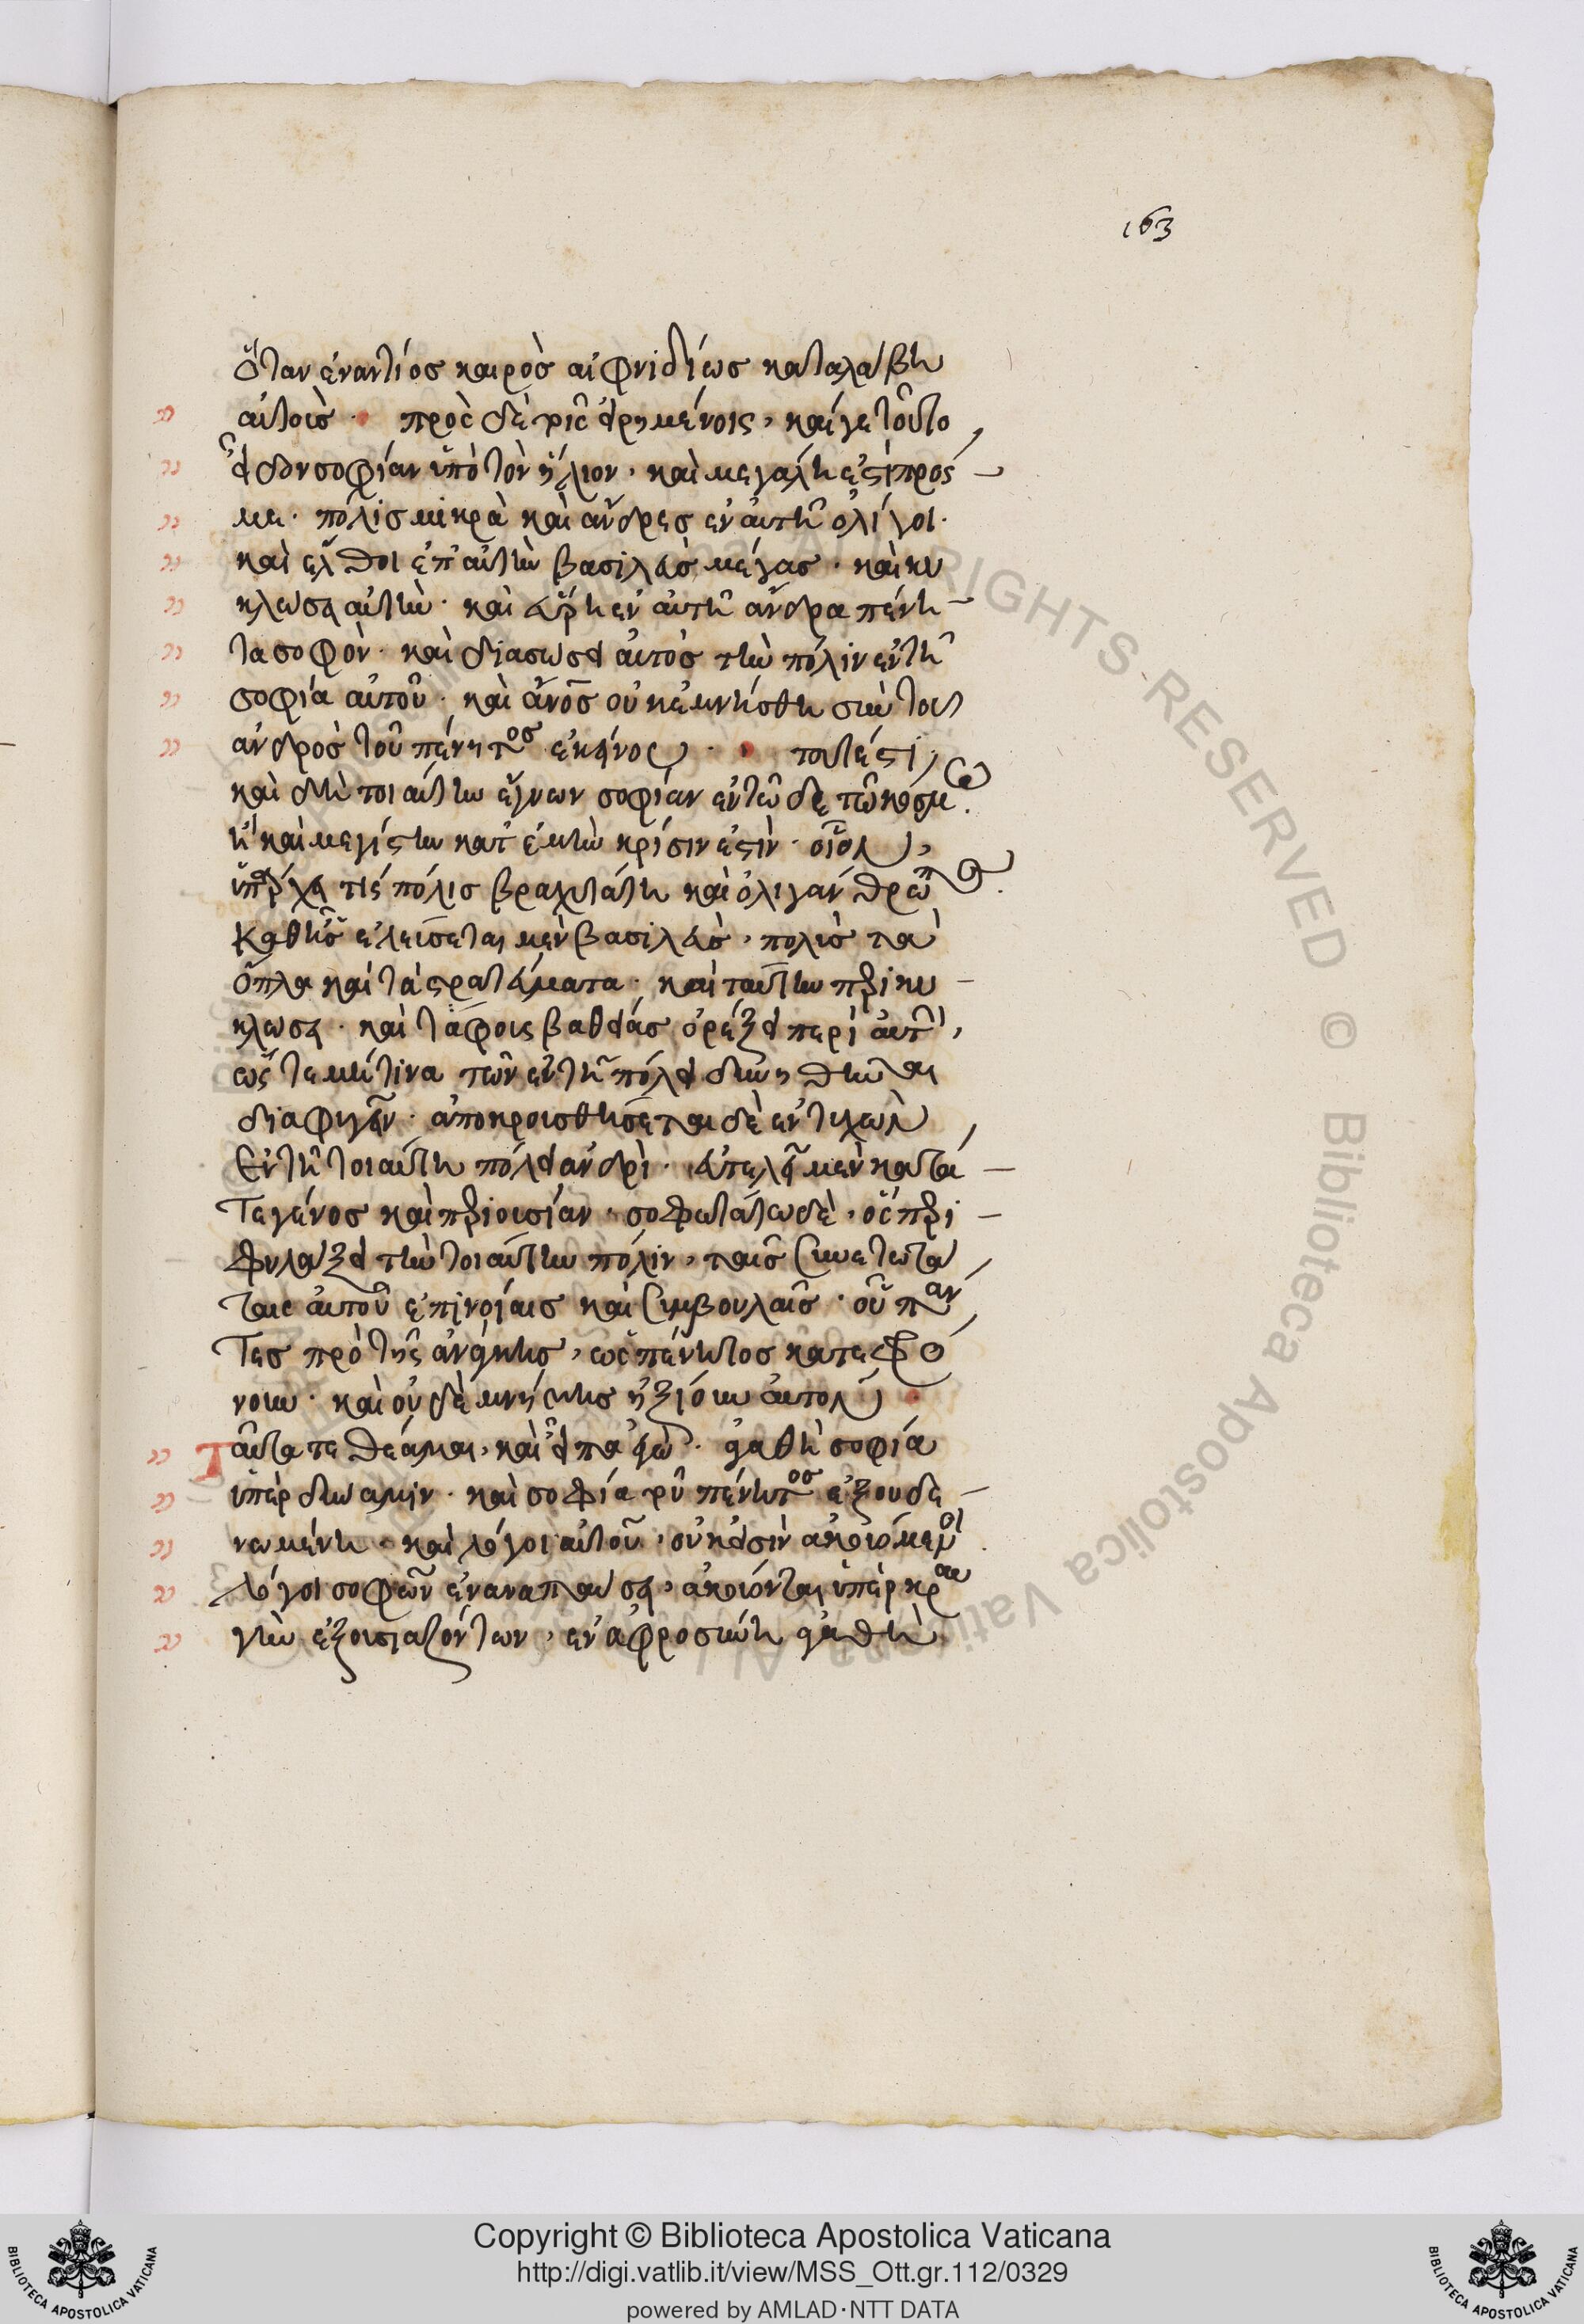 163
ὅταν ἐναντίος καιρὸς αἰφνιδίως καταλάβη
αὐτούς. πρὸς δὲ τοῖς εἰρημένοις, καί γε τοῦτο
εἶδον σοφίαν ὑπὸ τὸν ἥλιον, καὶ μεγάλη ἐστὶ πρός
με. πόλις μικρὰ καὶ ἄνδρες ἐν αὐτῆ ὀλίγοι.
καὶ ἔλθοι ἐπ' αὐτὴν βασιλεὺς μέγας. καὶ κυ
κλώσει αὐτὴν. καὶ εὕρη ἐν αὐτῆ ἄνδρα πένη
τα σοφὸν. καὶ διασώσει αὐτὸς τὴν πόλιν ἐν τῆ
σοφία αὐτοῦ. καὶ ἄνος οὐκ ἐμνήσθη σὺν τοῦ
ἀνδρὸς τοῦ πένητος ἐκείνου. τουτέστι,
καὶ δὴ τοιαύτην ἔγνων σοφίαν ἐν τῶδε τῶ κόσμω.
ἣ καὶ μεγίστη κατ' ἐμὴν κρίσιν ἐστὶν. οἷον,
ὑπάρχει τίς πόλις βραχυτάτη καὶ ὀλιγάνθρωπος.
καθ' ἧς ἐλεύσεται μὲν βασιλεὺς, πολὺς τὰ
ὅπλα καὶ τὰ στρατεύματα. καὶ ταύτην περικυ
κλώσει. καὶ τάφρους βαθείας ὀρύξει περὶ αὐτὴν,
ὥστε μή τινα τῶν ἐν τῆ πόλει δυνηθῆναι
διαφυγεῖν. ἀποκρουσθήσεται δὲ ἐντυχὼν
ἐν τῆ τοιαύτη πόλει ἀνδρὶ. εὐτελεῖ μὲν κατά
τε γένος καὶ περιουσίαν. σοφωτάτω δὲ, ὃς περι
φυλάξει τὴν τοιαύτην πόλιν, ταῖς συνετωτά
ταις αὐτοῦ ἐπινοίαις καὶ συμβουλαῖς. οὗ πάν
τες πρὸ τῆς ἀνάγκης, ὡς πένητος κατεφρό
νουν. καὶ οὐδὲ μνήμης ἠξίουν αὐτόν.
Ταῦτα τεθέαμαι, καὶ εἶπα ἐγὼ. ἀγαθὴ σοφία
ὑπὲρ δύναμιν. καὶ σοφία τοῦ πένητος ἐξουδε
νωμένη. καὶ λόγοι αὐτοῦ, οὐκ εἰσὶν ἀκουόμενοι.
λόγοι σοφῶν ἐν ἀναπαύσει, ἀκούονται ὑπὲρ κραυ
γὴν ἐξουσιαζόντων, ἐν ἀφροσύνη ἀγαθὴ
Copyright © Biblioteca Apostolica Vaticana
http://digi.vatlib.it/view/MSS_Ott.gr.112/0329
powered by AMLAD·NTT DATA